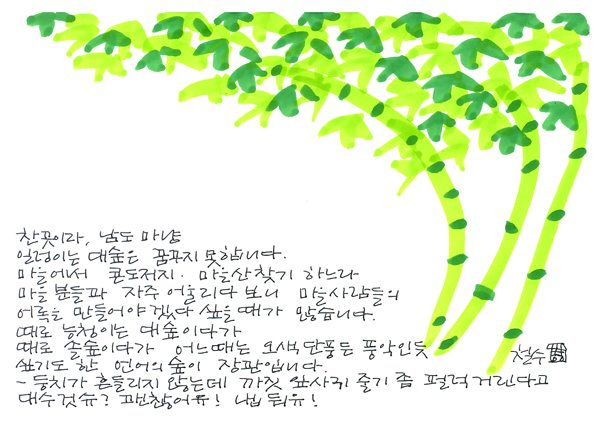 찬곳이라, 남도 마냥
일렁이는 대숲은 꿈꾸지 못합니다.
마을에서 콘도저지· 마을산찾기 하느라
마을 분들과 자주 어울리다 보니 마을사람들의
어록을 만들어야 겠다 싶을때가 많습니다.
때로 능청이는 대숲이다가
때로 솔숲이다가 어느때는 오색단풍든 풍악인듯
싶기도 한 언어의 숲이 장관입니다.
~ 둥치가 흔들리지 않는데 까짓 잎사귀 줄기 좀 펄럭거린다고
대수것슈? 괜찮어유! 냅둬유!
철수